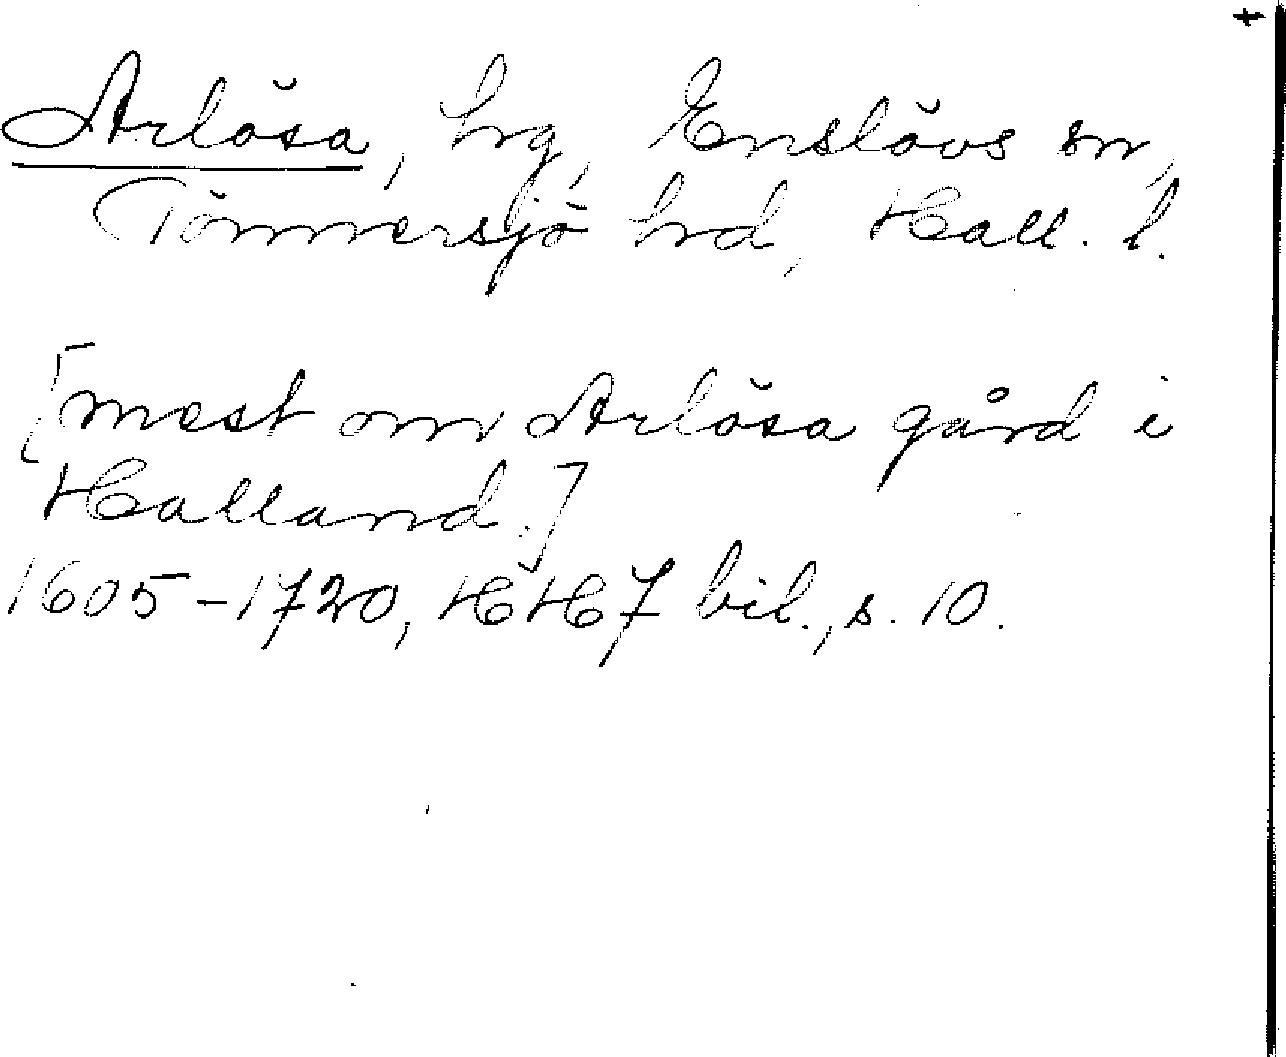 Arlösa, hrg, Enslövs sn,
Tönnersjö hrd, Hall. l.
[mest om Arlösa gård i
Halland.]
1605-1720, HH7 bil., s. 10.